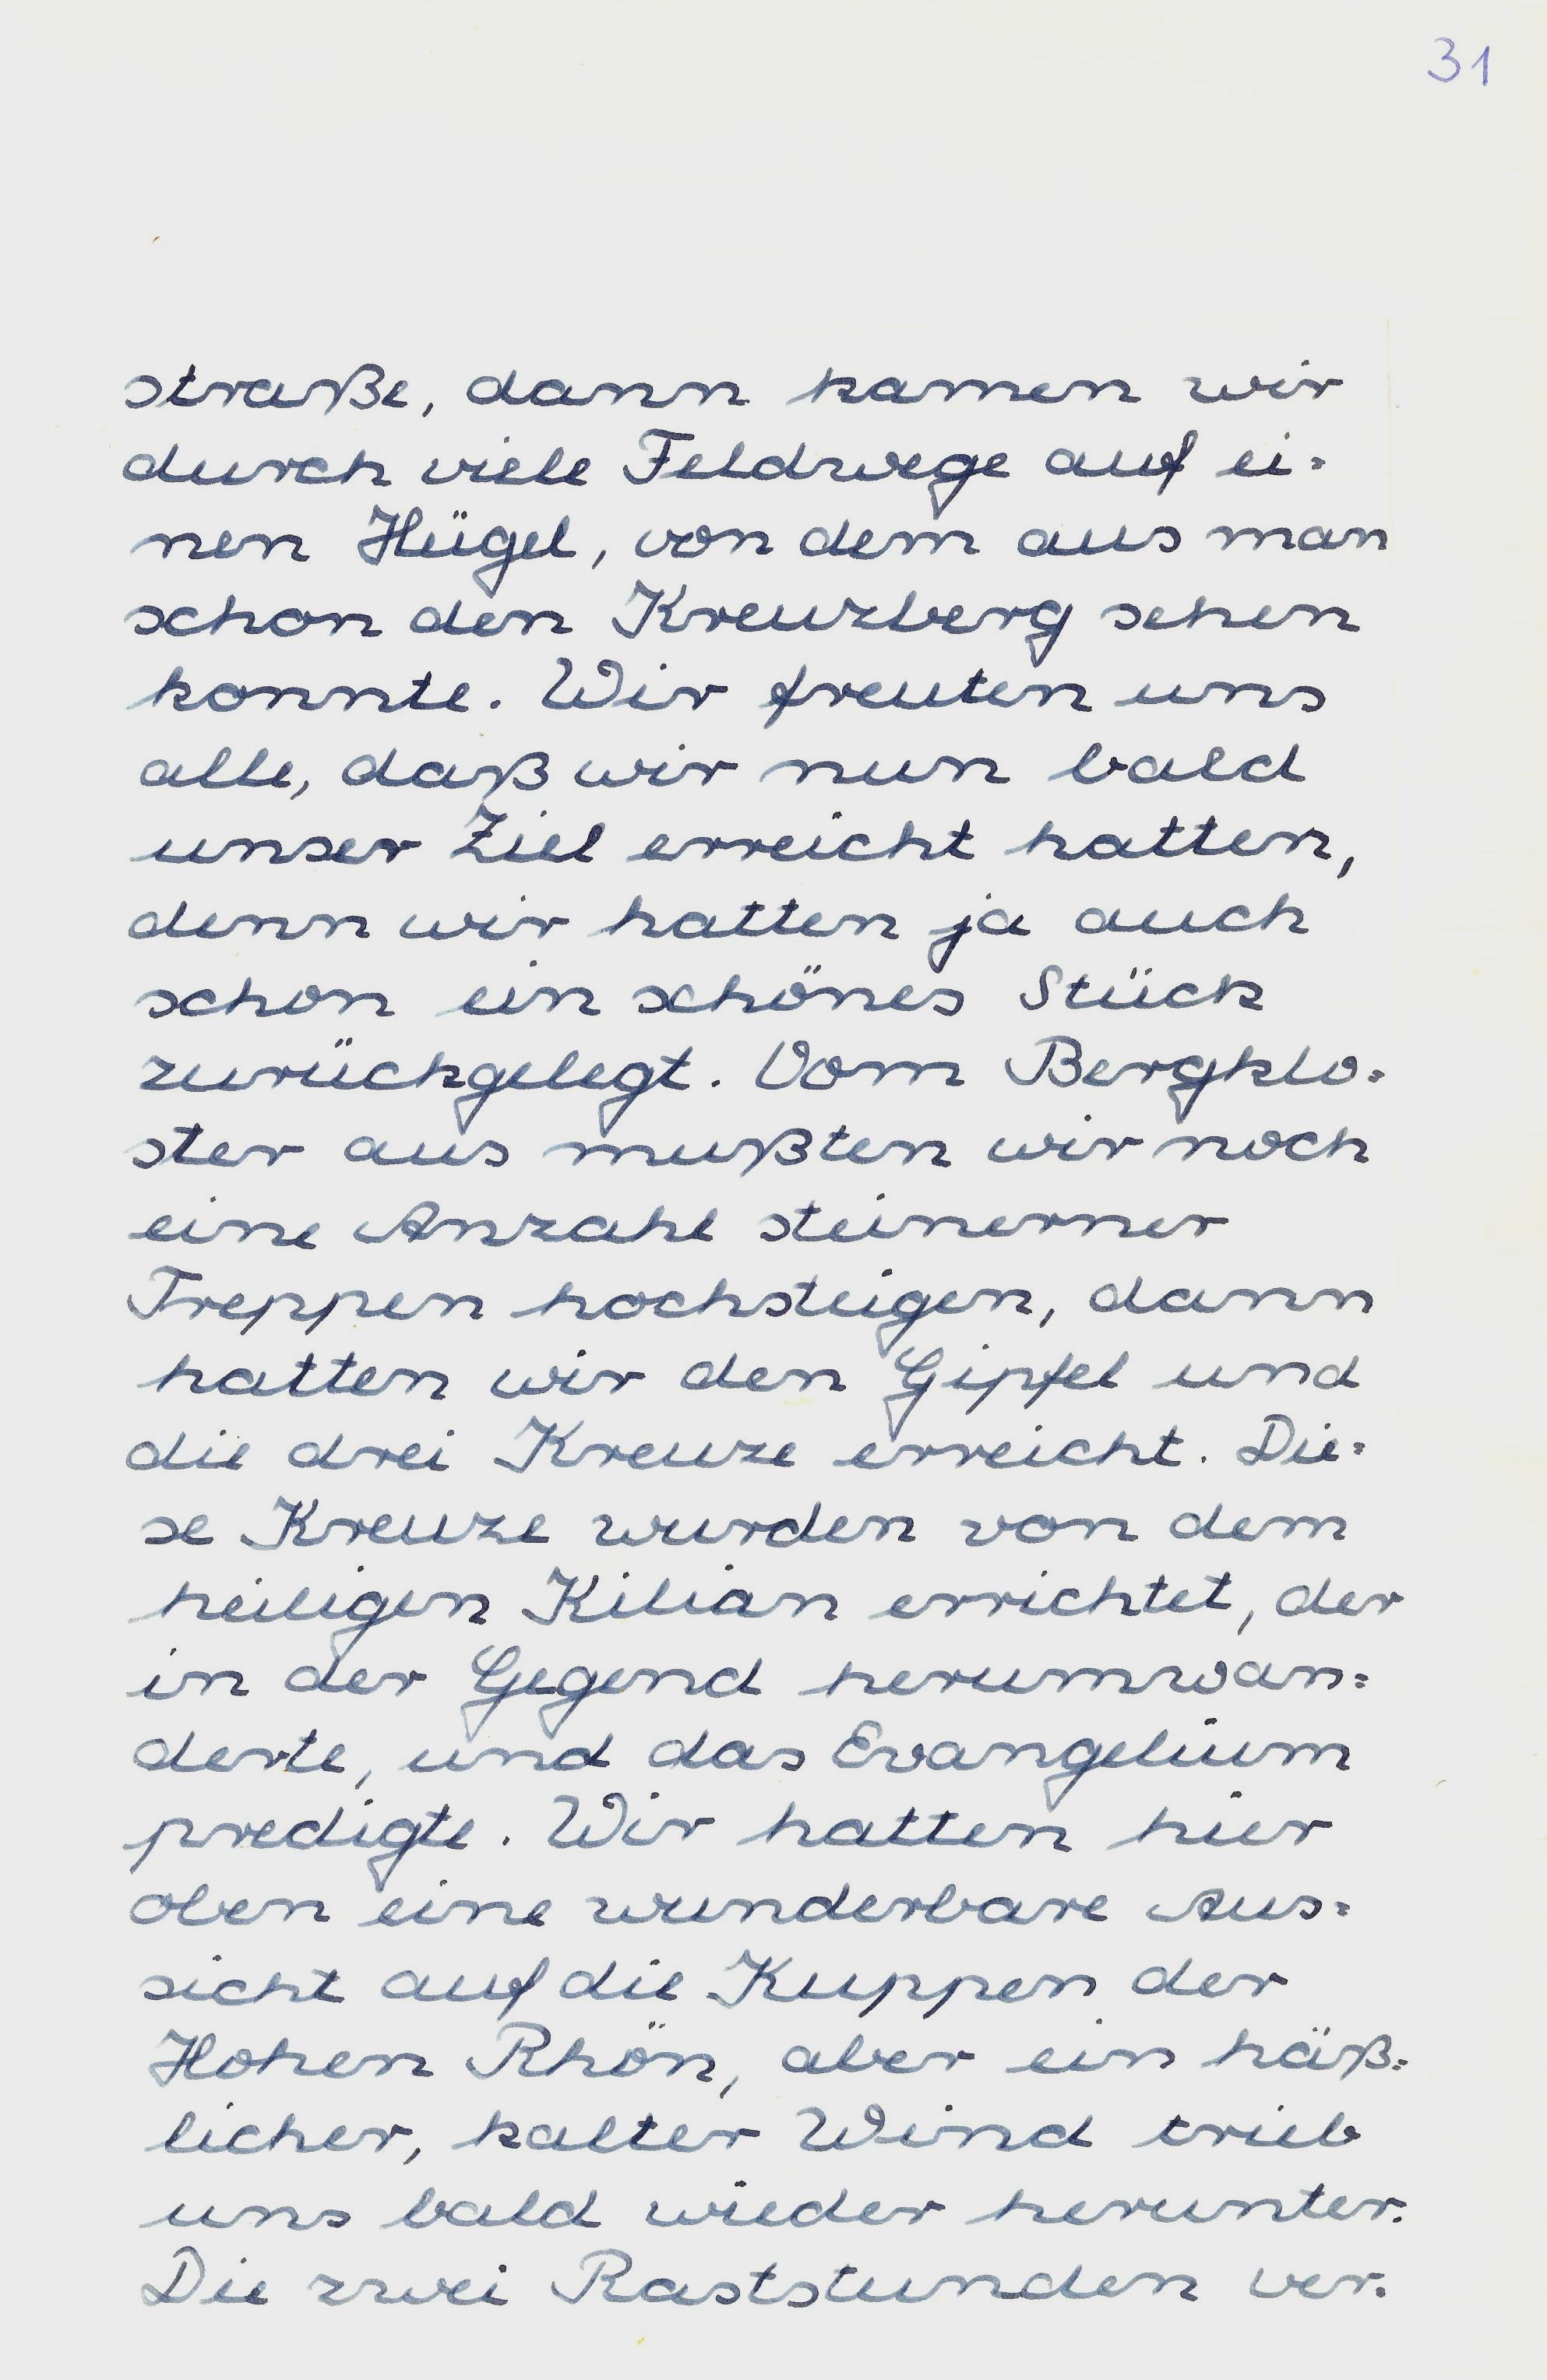 31
straße, dann kamen wir
durch viele Feldwege auf ei=
nen Hügel, von dem aus man
schon den Kreuzberg sehen
konnte. Wir freuten uns
alle, daß wir nun bald
unser Ziel erreicht hatten,
denn wir hatten ja auch
schon ein schönes Stück
zurückgelegt. Vom Bergklo=
ster aus mußten wir noch
eine Anzahl steinerner
Treppen hochsteigen, dann
hatten wir den Gipfel und
die drei Kreuze erreicht. Die=
se Kreuze wurden von dem
heiligen Kilian errichtet, der
in der Gegend herumwan=
derte, und das Evangelium
predigte. Wir hatten hier
oben eine wunderbare Aus=
sicht auf die Kuppen der
Hohen Rhön, aber ein häß=
licher, kalter Wind trieb
uns bald wieder herunter.
Die zwei Raststunden ver=